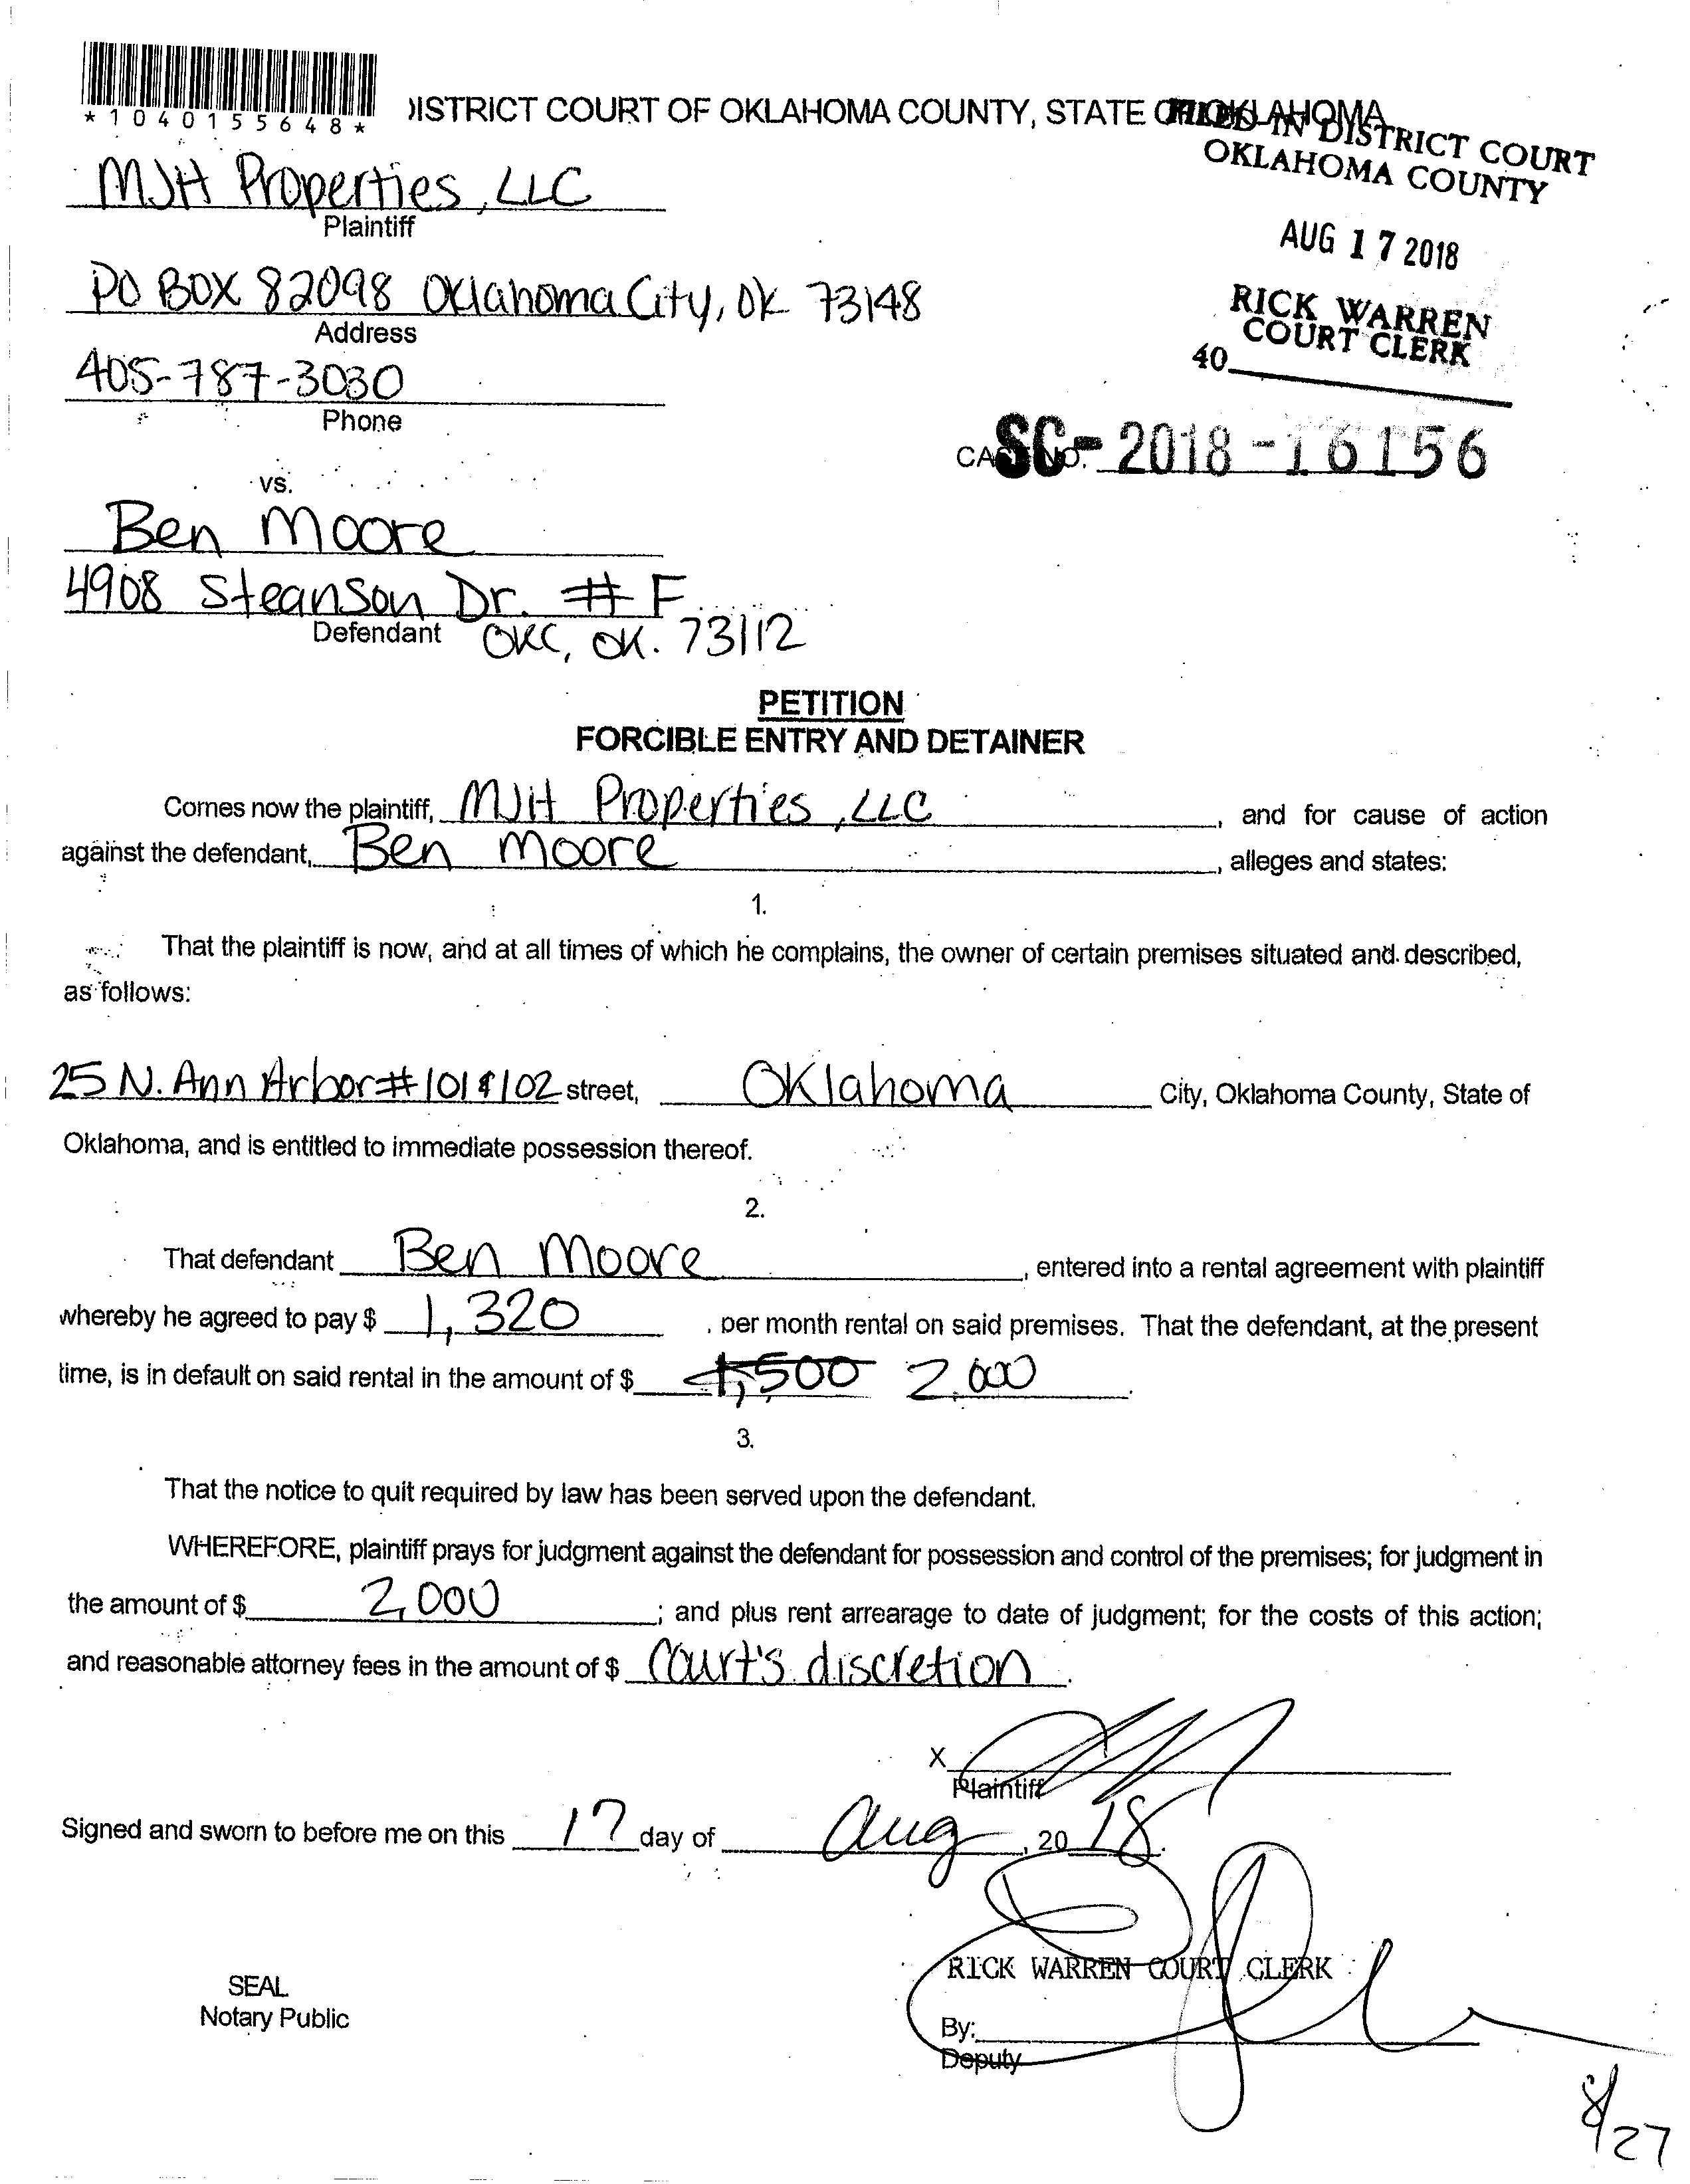 *1040155648*
DISTRICT COURT OF OKLAHOMA COUNTY, STATE OF OKLAHOMA
FILED IN DISTRICT COURT
OKLAHOMA COUNTY
MJH Properties, LLC
Plaintiff
AUG 17 2018
PO BOX 82098 Oklahoma City, Ok 73148
Address
RICK WARREN
COURT CLERK
40
405-787-3030
Phone
CASE NO. SC-2018-16156
vs.
Ben Moore
4908 Steanson Dr. # F
Defendant OKC, OK. 73112
PETITION
FORCIBLE ENTRY AND DETAINER
Comes now the plaintiff, MJH Properties, LLC, and for cause of action
against the defendant, Ben Moore, alleges and states:
1.
That the plaintiff is now, and at all times of which he complains, the owner of certain premises situated and described,
as follows:
25 N. Ann Arbor # 101 & 102 street, Oklahoma City, Oklahoma County, State of
Oklahoma, and is entitled to immediate possession thereof.
2.
That defendant Ben Moore, entered into a rental agreement with plaintiff
whereby he agreed to pay $ 1,320 . per month rental on said premises. That the defendant, at the present
time, is in default on said rental in the amount of $ 1,500 2,000.
3.
That the notice to quit required by law has been served upon the defendant.
WHEREFORE, plaintiff prays for judgment against the defendant for possession and control of the premises; for judgment in
the amount of $ 2,000; and plus rent arrearage to date of judgment; for the costs of this action;
and reasonable attorney fees in the amount of $ Court's discretion.
X
Plaintiff
Signed and sworn to before me on this 17 day of Aug, 20 18.
RICK WARREN COURT CLERK
SEAL
Notary Public
By:
Deputy
8/27